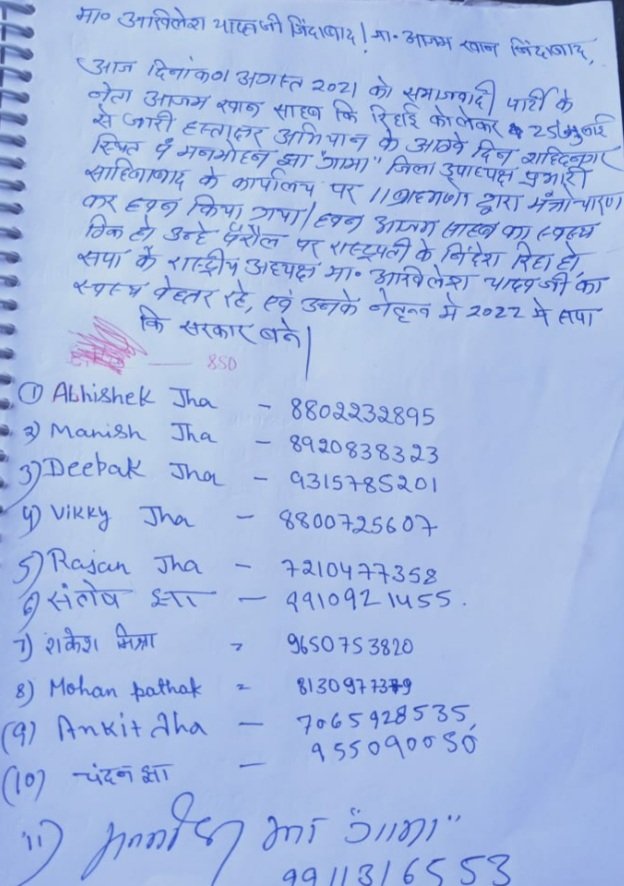 मा० अखिलेश यादव जी जिंदाबाद! मा० आजम खान जिंदाबाद,
आज दिनांक 01 अगस्त 2021 को समाजवादी पार्टी के
नेता आजम खान साहब कि रिहाई को लेकर 25 जुलाई
से जारी हस्ताक्षर अभियान के आठवे दिन
स्थित मनमोहन झा "गामा" जिला उपाध्यक्ष प्रभारी
साहिबाबाद के कार्यालय पर 11 ब्राह्मणो द्वारा मंत्रोचारण
कर हवन किया गया। हवन आजम साहब का स्वस्थ
ठिक हो उन्हे पैरौल पर राष्ट्रपती के निर्देश रिहा हो,
सपा के राष्ट्रीय अध्यक्ष मा० अखिलेश यादव जी का
स्वस्थ बेहतर रहे, एवं उनके नेतृत्व मे 2022 मे सपा
कि सरकार बने।
— 880
① Abhishek Jha - 8802232895
2) Manish Jha - 8920838323
3) Deepak Jha - 9315785201
4) Vikky Jha - 8800725607
5) Rajan Jha - 7210477358
6) संतोष झा - 9910921455.
7) राकेश मिश्रा - 9650753820
8) Mohan pathak = 8130977379
(9) Ankit Jha - 7065928535,
(10) चंदन झा - 955090050
11) मनमोहन झा "गामा"
9911316553